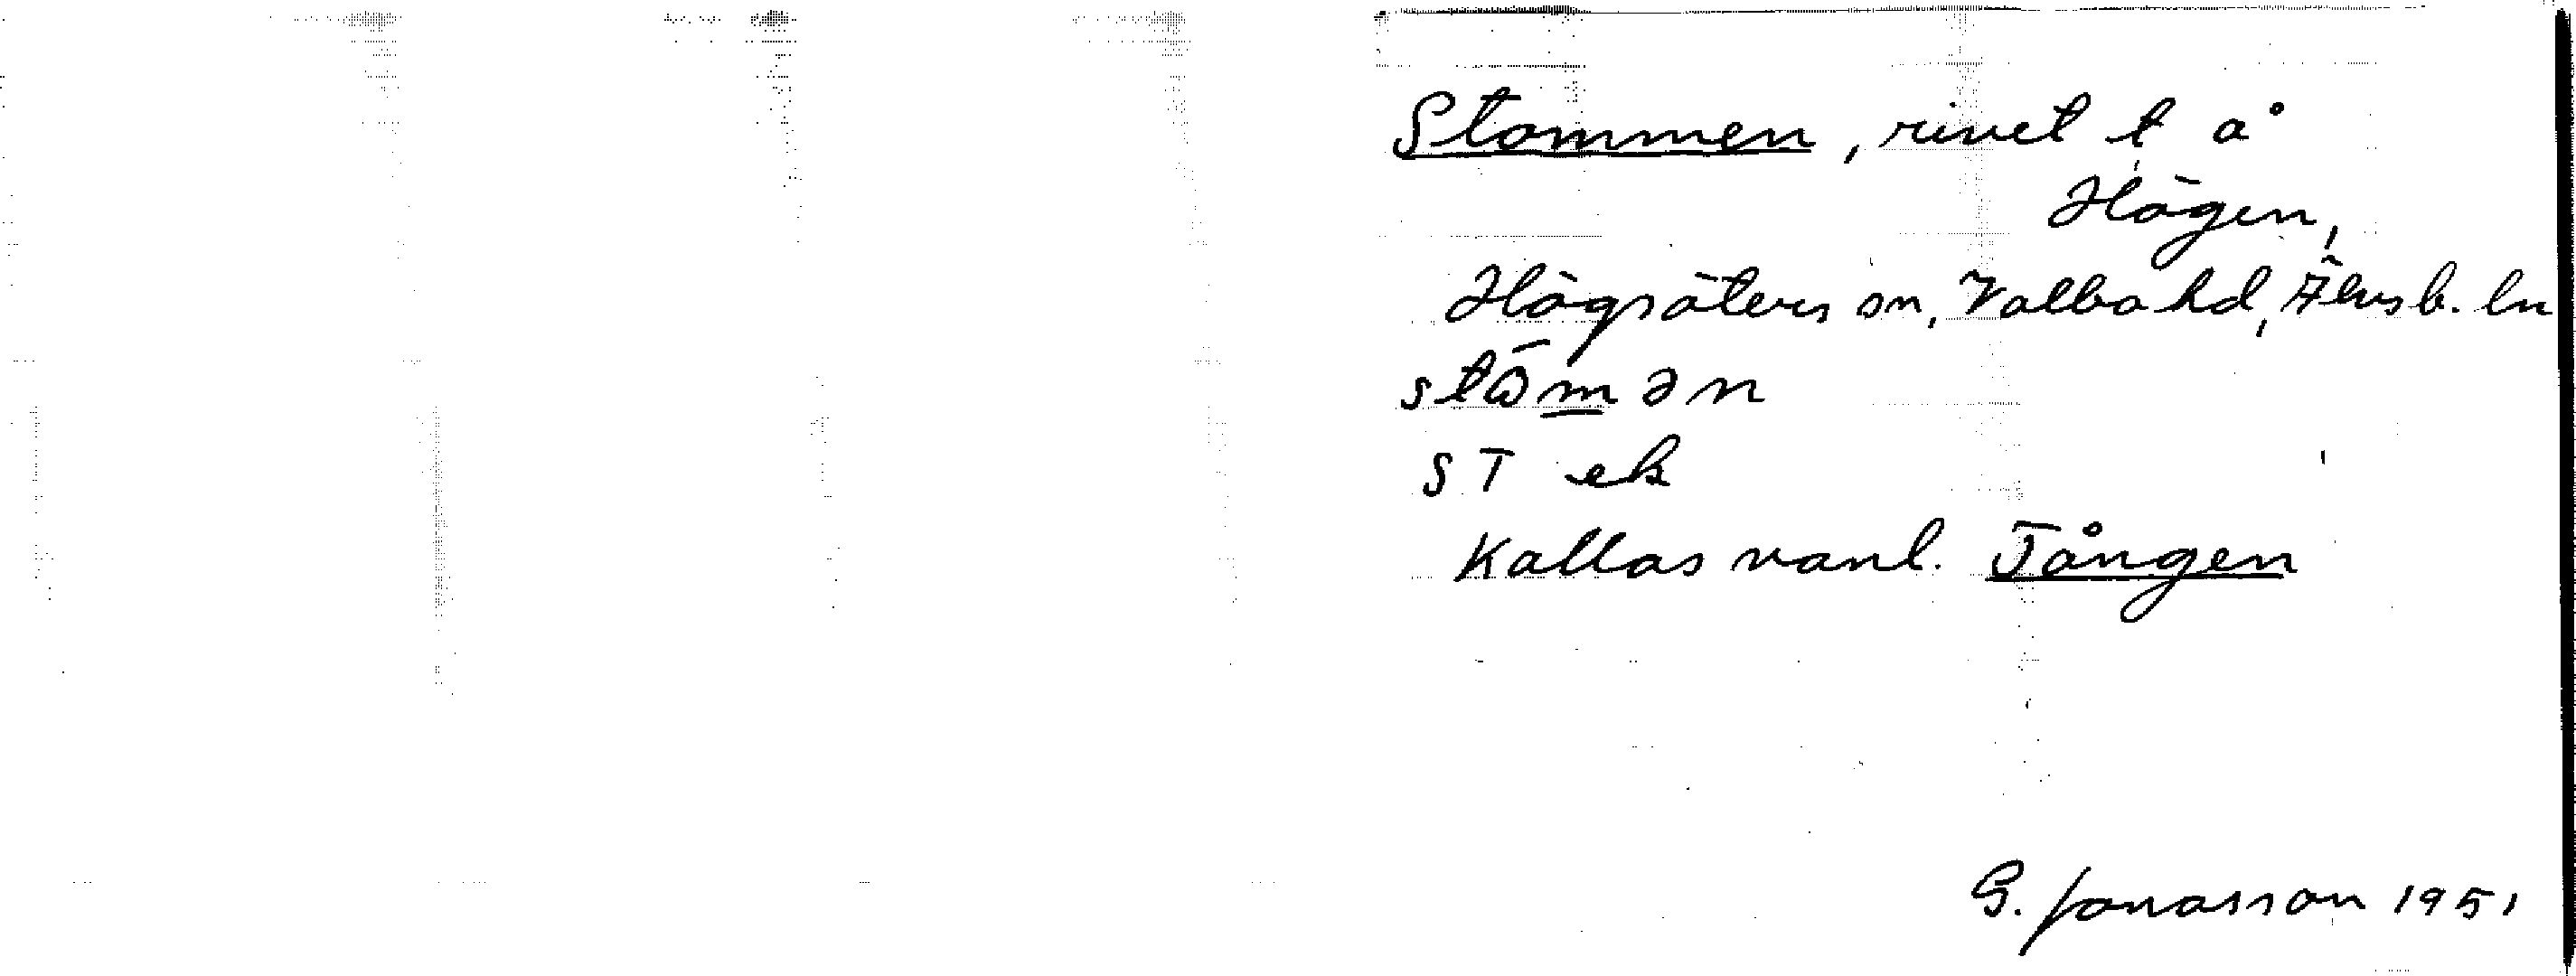 Stommen, rivet t å
Högen,
Högsäters sn, Valbo hd, Älvsb. ln
stω̄mən
ST ek
Kallas vanl. Tången
G. Jonasson 1951